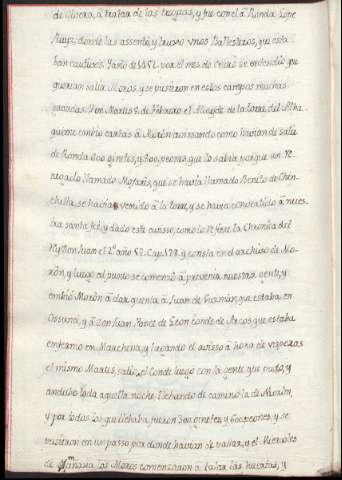 de Olvera, à tratar de las treguas, y fue con el à Ronda Lope
Ruiz, donde las assentò, y truxo unos Ballesteros, que esta
ban cautivos. Y año de 1452. por el mes de Enero se entendio que
querian salir Moros, y se pusieron en estos campos muchas
Y en Martes 8. de Febrero el Alcayde de la torre del Alha
quime embio cartas à Moròn avisando como havian de salir
de Ronda 800 ginetes, y 500 peones, que lo sabia porque un Re
negado llamado Mofarix, que se havia llamado Benito de Chin
chilla, se havia venido à la torre, y se havia convertido à nues
tra santa feè, y dado este avisso, como lo refiere la Chronica del
Rey Don Juan el 2º año 52. Cap. 178. y consta en el archivo de Mo
ròn, y luego al punto se comenzò à prevenir nuestra gente, y
embiò Moròn à dar quenta à Juan de Guzmàn, que estaba en
Ossuna, y à Don Juan Ponce de Leon Conde de Arcos que estaba
enfermo en Marchena, y llegando el avisso à hora de visperas
el mismo Martes, saliò el Conde luego con la gente que pudo, y
anduvo toda aquella noche llevando de camino la de Moròn,
y por todos los que llevaba fueron 300 ginetes, y 600 peones, y se
pusieron en un passo por donde havian de passar, y el Miercoles
de mañana los Moros comenzaron à talar las huertas, y